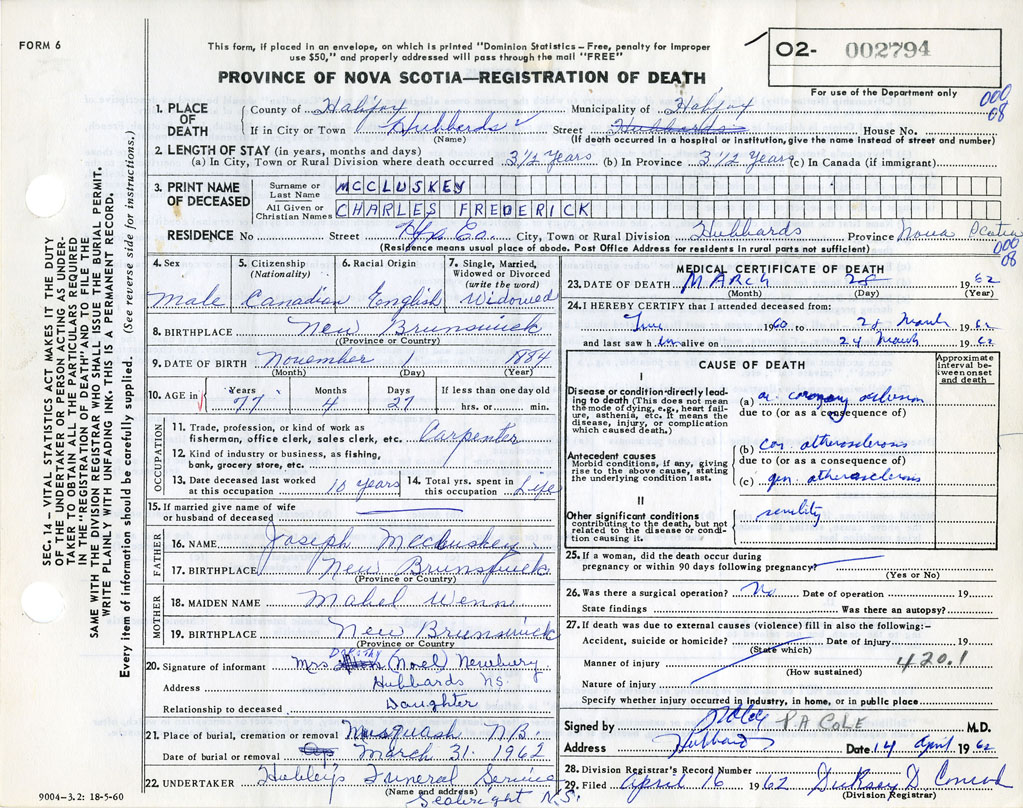 FORM 6
This form, if placed in an envelope, on which is printed "Dominion Statistics – Free, penalty for improper
use $50," and properly addressed will pass through the mail "FREE"
PROVINCE OF NOVA SCOTIA—REGISTRATION OF DEATH
02- 002794
For use of the Department only
000
08
1. PLACE OF DEATH
County of Halifax Municipality of Halifax
If in City or Town Hubbards Street Hubbards House No.
(Name) (If death occurred in a hospital or institution, give the name instead of street and number)
2. LENGTH OF STAY (in years, months and days)
(a) In City, Town or Rural Division where death occurred 3 1/2 Years (b) In Province 3 1/2 Years (c) In Canada (if immigrant)
3. PRINT NAME OF DECEASED
Surname or Last Name MCCLUSKEY
All Given or Christian Names CHARLES FREDERICK
RESIDENCE No Street Hfx Co. City, Town or Rural Division Hubbards Province Nova Scotia
(Residence means usual place of abode. Post Office Address for residents in rural parts not sufficient)
000
08
4. Sex 5. Citizenship (Nationality) 6. Racial Origin 7. Single, Married, Widowed or Divorced (write the word)
Male Canadian English Widowed
8. BIRTHPLACE New Brunswick
(Province or Country)
9. DATE OF BIRTH November 1 1884
(Month) (Day) (Year)
10. AGE in Years 77 Months 4 Days 27 If less than one day old hrs. or min.
OCCUPATION
11. Trade, profession, or kind of work as fisherman, office clerk, sales clerk, etc. Carpenter
12. Kind of industry or business, as fishing, bank, grocery store, etc.
13. Date deceased last worked at this occupation 10 years 14. Total yrs. spent in this occupation Life
15. If married give name of wife or husband of deceased
FATHER
16. NAME Joseph McCluskey
17. BIRTHPLACE New Brunswick
(Province or Country)
MOTHER
18. MAIDEN NAME Mabel Wenn
19. BIRTHPLACE New Brunswick
(Province or Country)
20. Signature of informant Mrs (Noel) Newbury
Address Hubbards NS.
Relationship to deceased Daughter
21. Place of burial, cremation or removal Musquash N.B.
Date of burial or removal March 31. 1962
22. UNDERTAKER Hubley's Funeral Service
(Name and address) Seabright N.S.
9004-3.2: 18-5-60
MEDICAL CERTIFICATE OF DEATH
23. DATE OF DEATH MARCH 28 1962
(Month) (Day) (Year)
24. I HEREBY CERTIFY that I attended deceased from:
June 1960 to 28 March 1962
and last saw him alive on 24 March 1962
CAUSE OF DEATH
Approximate interval between onset and death
I
Disease or condition directly leading to death (This does not mean the mode of dying, e.g., heart failure, asthenia, etc. It means the disease, injury, or complication which caused death.)
(a) ac. coronary occlusion
due to (or as a consequence of)
Antecedent causes
Morbid conditions, if any, giving rise to the above cause, stating the underlying condition last.
(b) cor. atherosclerosis
due to (or as a consequence of)
(c) gen. atherosclerosis
II
Other significant conditions
contributing to the death, but not related to the disease or condition causing it.
senility
25. If a woman, did the death occur during pregnancy or within 90 days following pregnancy?
(Yes or No)
26. Was there a surgical operation? No Date of operation 19
State findings Was there an autopsy?
27. If death was due to external causes (violence) fill in also the following:–
Accident, suicide or homicide? Date of injury 19
(State which)
Manner of injury 420.1
(How sustained)
Nature of injury
Specify whether injury occurred in industry, in home, or in public place
Signed by P.A COLE M.D.
Address Hubbards Date 14 April 1962
28. Division Registrar's Record Number
29. Filed April 16 1962 D. Conrad
(Division Registrar)
SEC. 14 – VITAL STATISTICS ACT MAKES IT THE DUTY
OF THE UNDERTAKER OR PERSON ACTING AS UNDER-
TAKER TO OBTAIN ALL THE PARTICULARS REQUIRED
IN THE "REGISTRATION OF DEATH" AND TO FILE THE
SAME WITH THE DIVISION REGISTRAR WHO SHALL ISSUE THE BURIAL PERMIT.
WRITE PLAINLY WITH UNFADING INK. THIS IS A PERMANENT RECORD.
Every item of information should be carefully supplied. (See reverse side for instructions.)